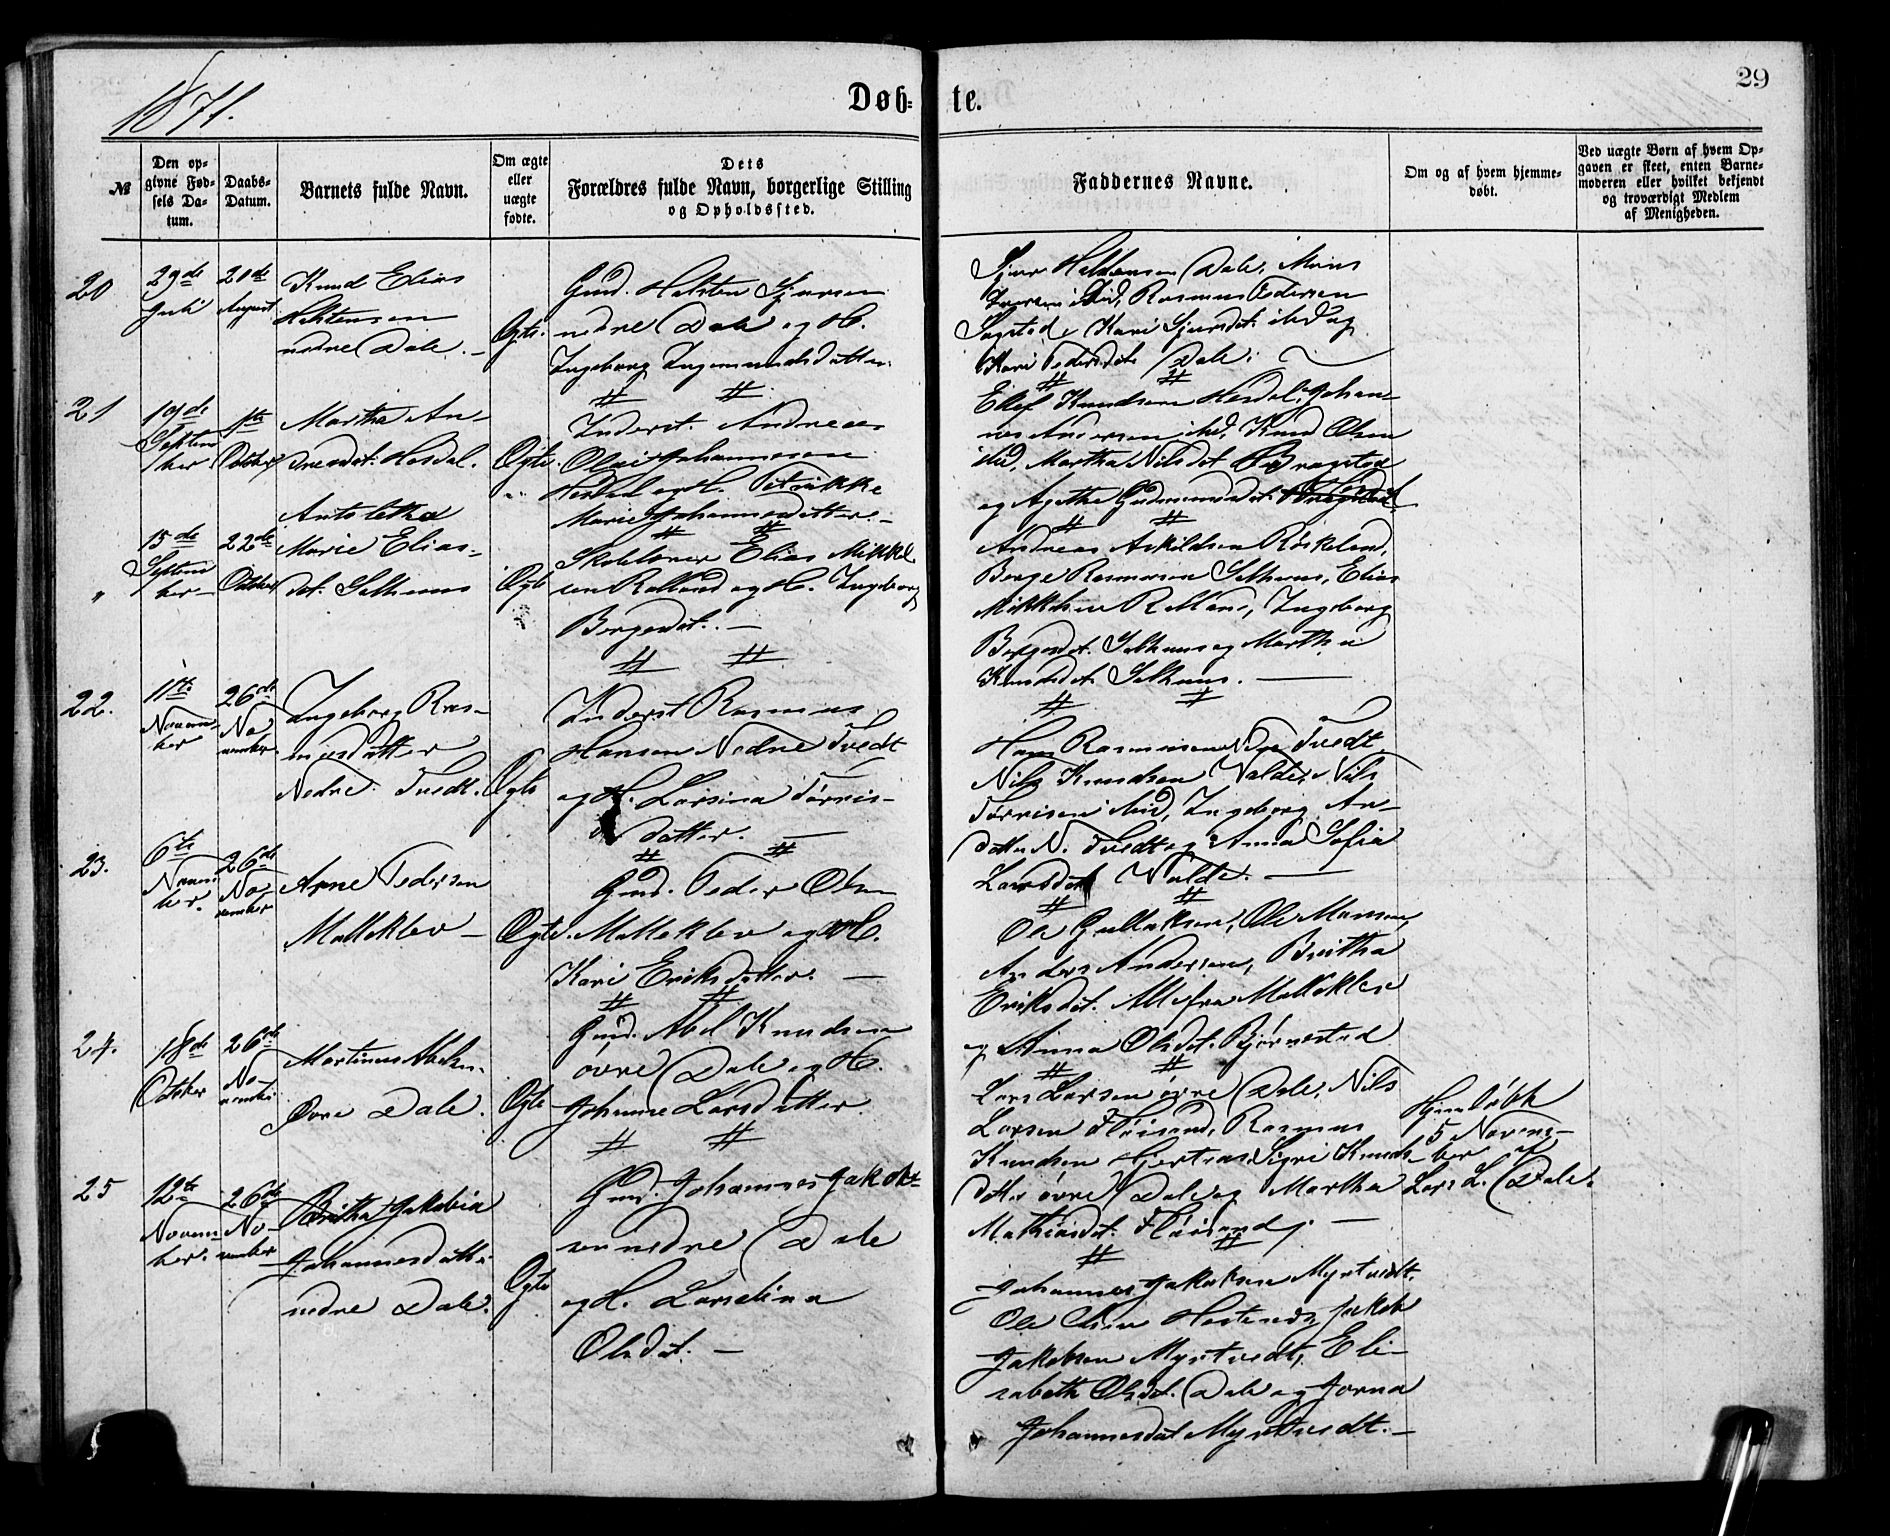 1871.
Døb-
te.
29
№
Den op-
givne Fød-
sels Da-
tum.
Daabs-
Datum.
Barnets fulde Navn.
Om ægte
eller
uægte
fødte.
Dets
Forældres fulde Navn, borgerlige Stilling
og Opholdssted.
Faddernes Navne.
Om og af hvem hjemme-
døbt.
Ved uægte Børn af hvem Op-
gaven er skeet, enten Barne-
moderen eller hvilket bekjendt
og troværdigt Medlem
af Menigheden.
20
29de
Juli
20de
August
Knud Elias
Halstensen
nedre Dale.
Ægte.
Gmd. Halsten Sjursen
nedre Dale og H.
Ingeborg Ingemundsdatter.
Sjur Halstensen Dale, Mons
Iversen ibid, Rasmus Pedersen
Sagstad, Kari Sjursdt. ibid og
Kari Pedersdt. Dale.
21
19de
Septem
ber
1ste
October
Martha An-
dreasdt. Hesdal.
Ægte.
Inderst. Andreas
Olai Johannesen
Hesdal og H. Petrikke
Marie Johannesdatter.
Elef Knudsen Hesdal, Johan-
nes Andersen ibid, Knud Olsen
ibid, Martha Nilsdt. Bragstad
og Agathe Gudmundsdt.
"
15de
Septem
ber
22de
October
Marie Elias-
dt. Selheim
Ægte
Skolelærer Elias Mikkel
sen Rolland og H. Ingeborg
Børgesdt.
Andreas Askildsen Røskeland,
Børge Rasmussen Selheim, Elias
Mikkelsen Rolland, Ingeborg
Børgesdt. Selheim og Martha
Knudsdt. Selheim.
22.
11te
Novem
ber
26de
No
vember
Ingeborg Ras-
musdatter
Nedre Tvedt.
Ægte
Inderst Rasmus
Hansen Nedre Tvedt
og H. Larsina Tørris-
datter.
Hans Rasmussen Nedre Tvedt,
Nils Knudsen Valde, Nils
Tørrisen ibid, Ingeborg An-
datter N. Tvedt og Anna Sofia
Larsdt. Valde.
23.
6te
Novem
ber.
26de
No
vember
Arne Pedersen
Molleklev
Ægte.
Gmd. Peder Olsen
Molleklev og H.
Kari Eriksdatter.
Ole Gullaksen, Ole Monsen,
Anders Andersen, Britha
Eriksdt. Alle fra Molleklev
og Anna Olsdt. Bjørnestad
24.
18de
October
26de
No-
vember
Martinus Abelsen.
Øvre Dale.
Ægte
Gmd. Abel Knudsen
øvre Dale og H.
Johanne Larsdatter.
Lars Larsen øvre Dale, Nils
Larsen Fløisand, Rasmus
Knudsen Hjertaas, Sigri Knuds-
datter øvre Dale og Martha
Mathiasdt. Fløisand.
Hjemdøbt
5 Novem-
ber af
Lars L. Dale.
25
12te
Novem
ber.
26de
No-
vember
Britha Jakobia
Johannesdatter
nedre Dale.
Ægte
Gmd. Johannes Jakob-
sen nedre Dale
og H. Larselina
Olsdt.
Johannes Jakobsen Myrtvedt.
Ole Olsen Hostend, Jakob
Jakobsen Myrtvedt, Eli-
sabeth Olsdt. Dale og Jorna
Johannesdat Myrtvedt.